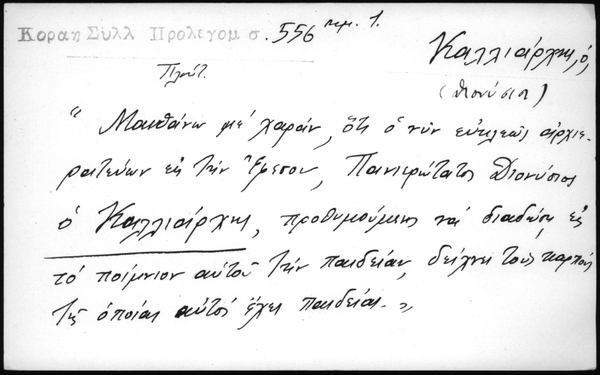 Κοραη Συλλ Προλεγομ σ. 556 τεμ. 1.
Καλλιάρχης, ὁ
Πλούτ.
(Διονύσιος)
"Μανθάνω μὲ χαράν, ὅτι ὁ νῦν εὐκλεῶς ἀρχιε-
ρατεύων εἰς τὴν Ἔφεσον, Πανιερώτατος Διονύσιος
ὁ Καλλιάρχης, προθυμούμενος νὰ διαδώσῃ εἰς
τὸ ποίμνιον αὐτοῦ τὴν παιδείαν, δείχνει τοὺς καρποὺς
τῆς ὁποίας αὐτὸς ἔχει παιδείας."